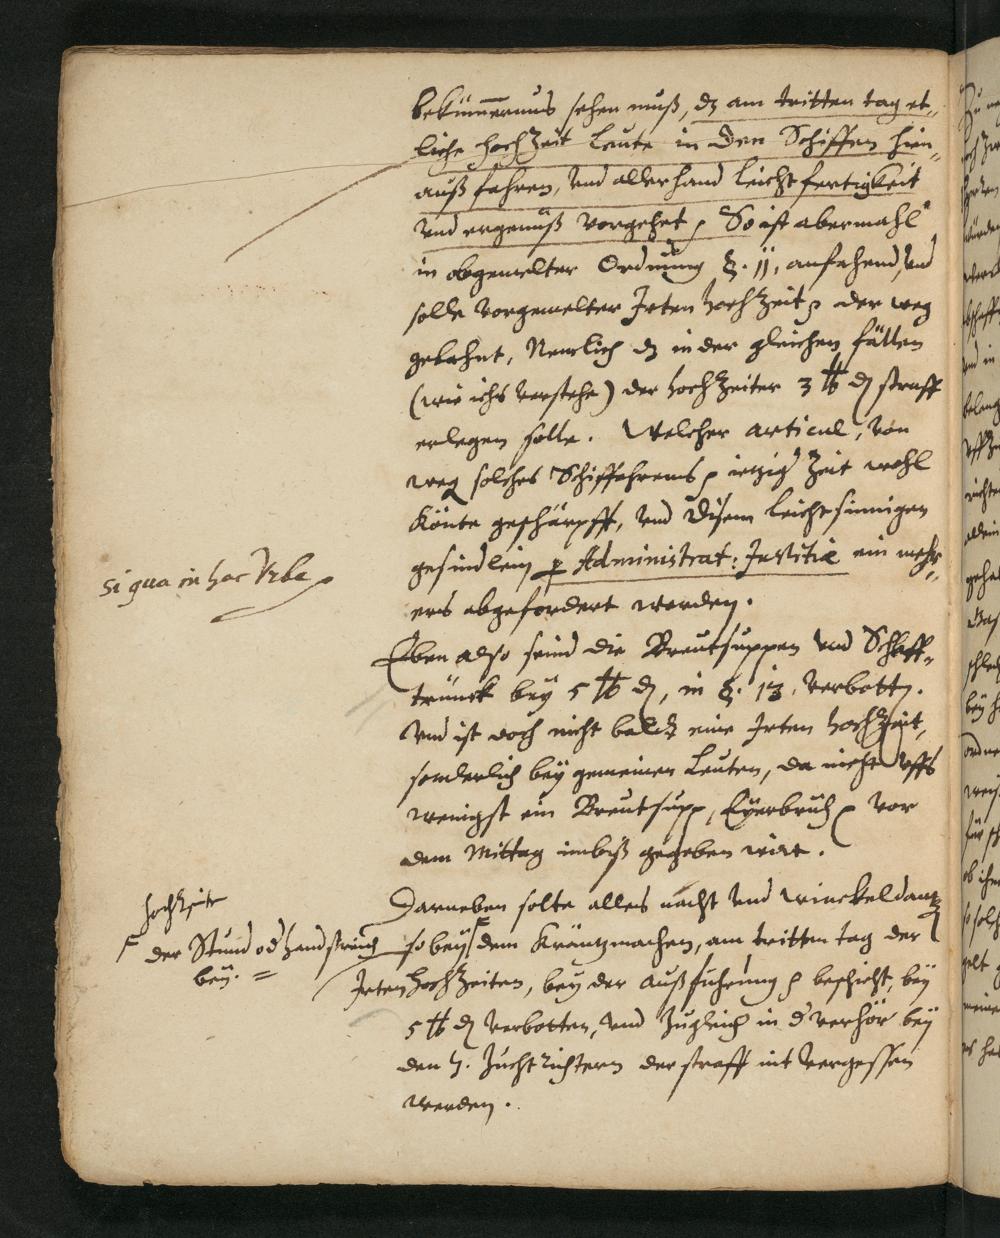 bekümmernus sehen muß, dz am tritten tag et„
liche hochzeit leute in den Schiffen hien„
auß fahren, vnd allerhand leichtfertigkeit
vnd ergernuß vorgehet / So ist abermahl
in obgemelter Ordnung §. 11, anfahend, vnd
solle vorgemelter Irten hochzeit der weg
gebahnt, Nemlich dz in der gleichen fällen
(wie ichs verstehe) der hochzeiter 3 ℔ ₰ straff
erlegen solle. Welcher articul, von
weg solches Schiffahrens / ietzig Zeit wohl
könte geschärpfft, vnd disem leichtsinnigen
gesindlein p Administrat: Justitiæ ein mehr„
ers abgefordert werden.
si qua in hac Vrbe
Eben also seind die Breutsuppen vnd Schlaff„
trünck bey 5 ℔ ₰, in §. 13, verbotten.
vnd ist doch nicht bald eine Irten hochzeit,
sonderlich bey gemeinen leuten, da nicht vffs
wenigst ein Breutsupp, Eyerbrüh vor
dem Mittag imbiß gegeben wirt.
Darneben solte alles nacht vnd winckeldantz
so bey Γ dem kräntzmachen, am tritten tag der
Irten hochzeiten, bey der außführung / beschicht, bey
5 ℔ ₰ verbotten, vnd zugleich in d verhör bey
den H. Zuchtrichtern der straff nit vergessen
werden.
hochzeite
Γ der Stund od handstreich
bey. =